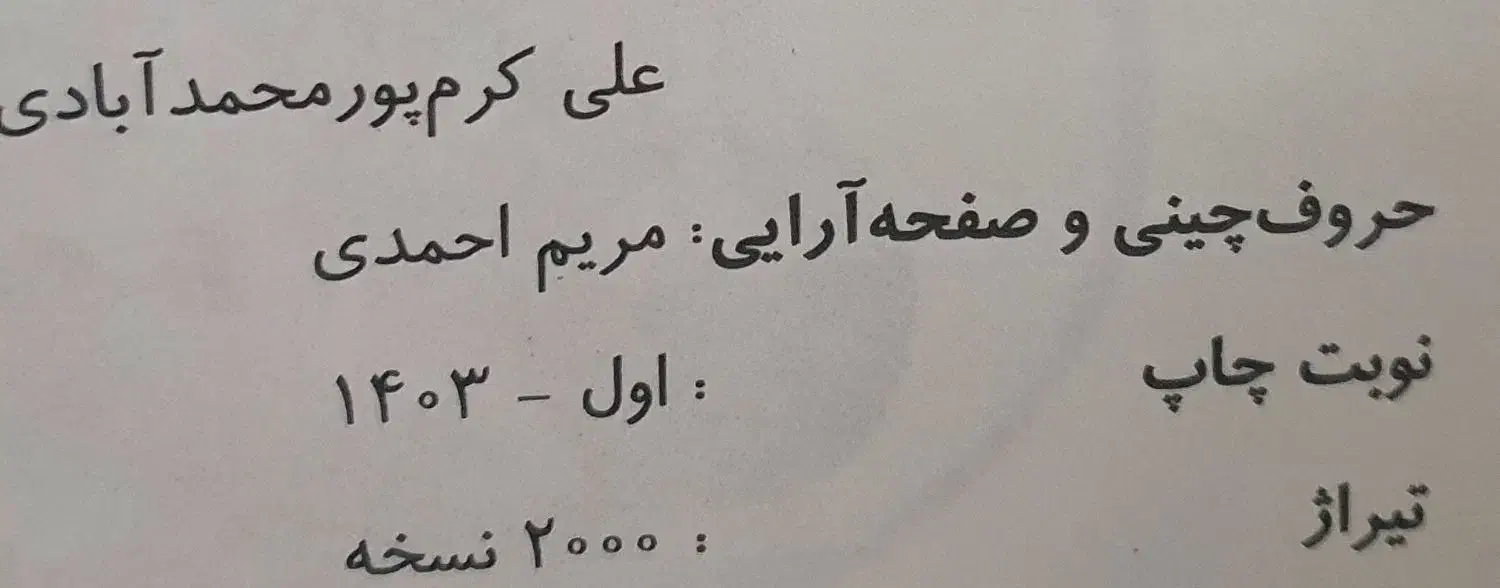 علی کرم‌پور محمدآبادی
حروف‌چینی و صفحه‌آرایی: مریم احمدی
نوبت چاپ : اول - ۱۴۰۳
تیراژ : ۲۰۰۰ نسخه